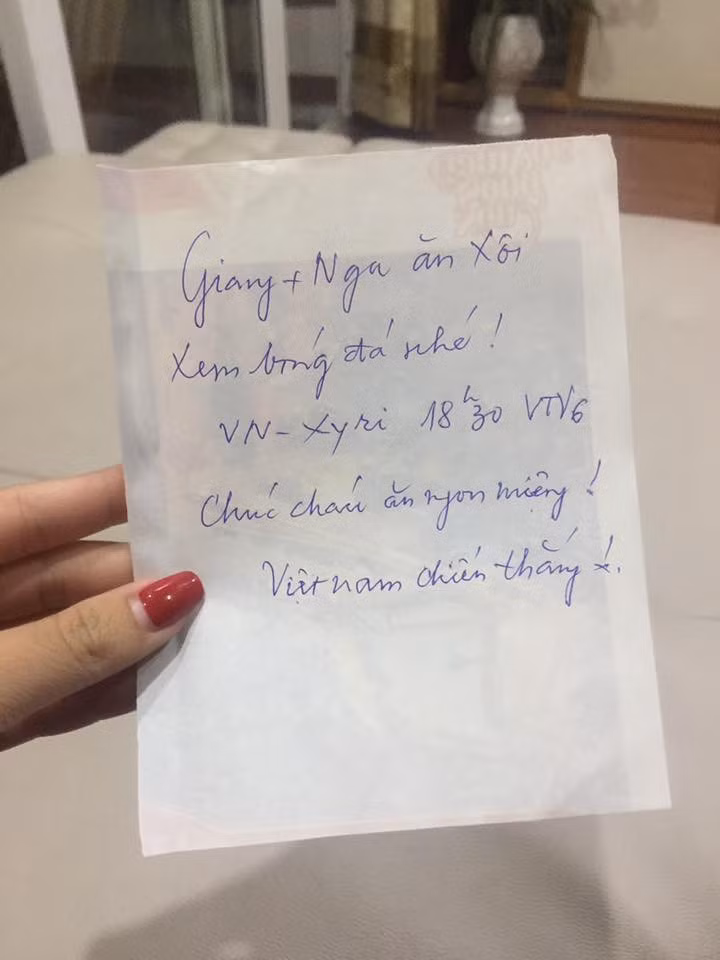 Giang + Nga ăn xôi
Xem bóng đá nhé!
VN - Xyri 18h30 VTV6
Chúc cháu ăn ngon miệng!
Việt nam chiến thắng!